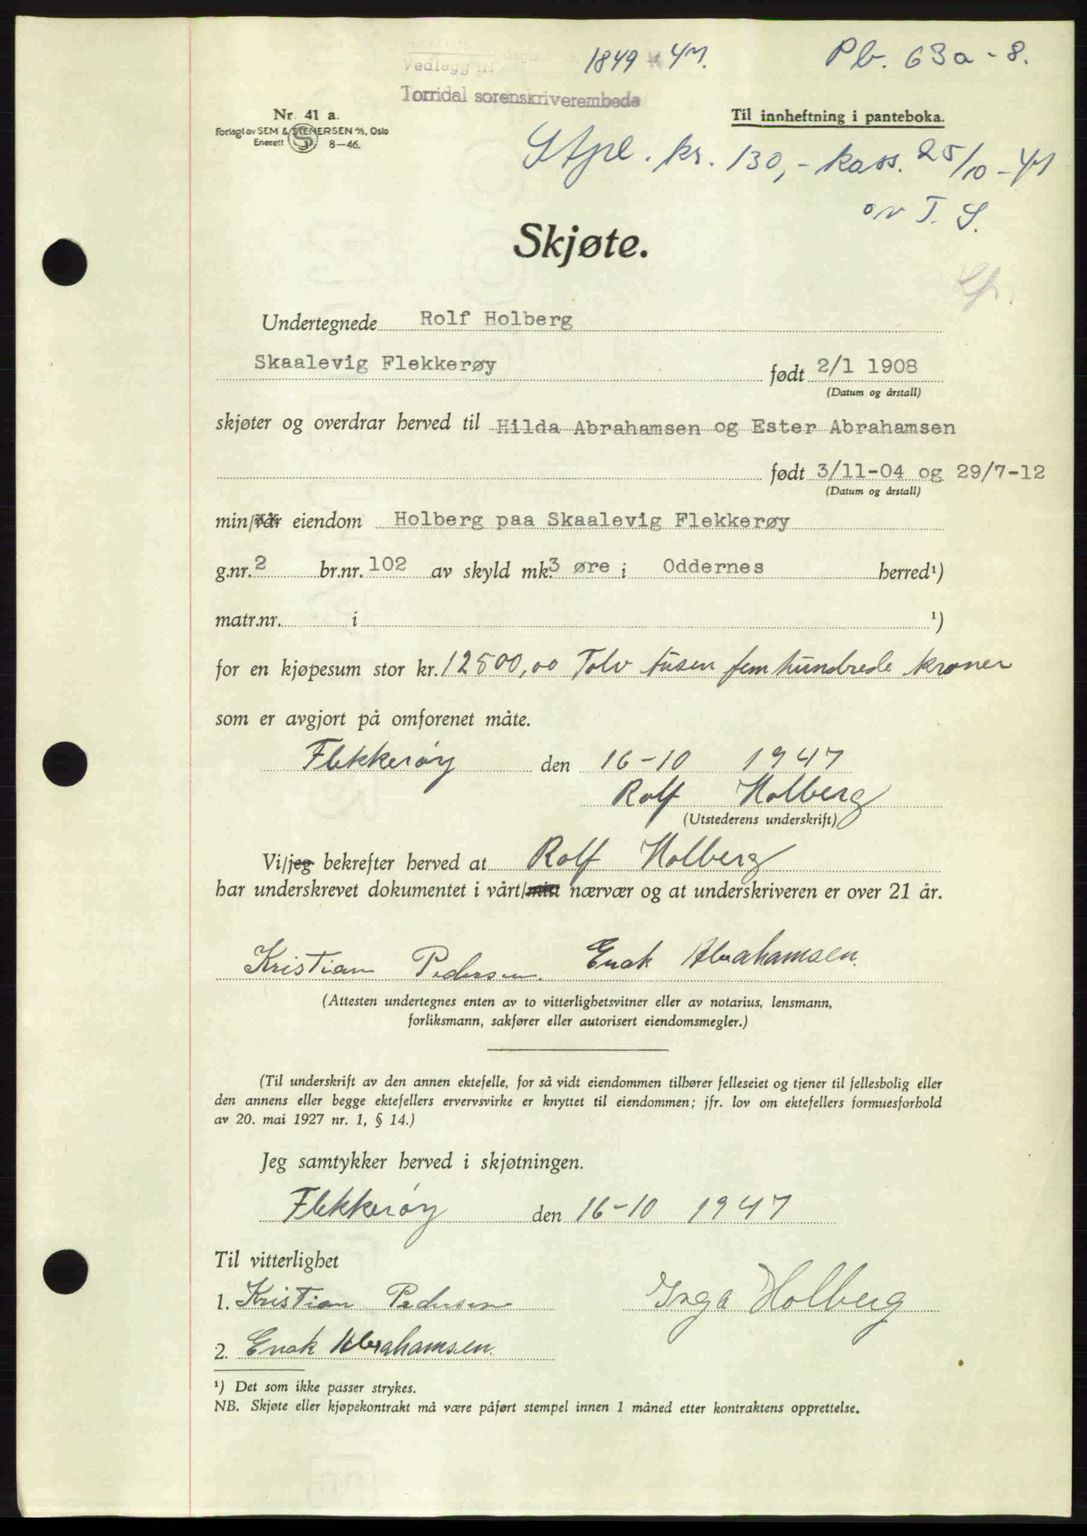 1849 47. Pb. 63a - 8.
Vedlegg til
Torridal sorenskriverembede
Nr. 41 a.
Til innheftning i panteboka.
Forlagt av SEM & STENERSEN A/S, Oslo
Enerett S 8—46.
Stpl. kr. 130,- kass. 25/10-47
av T. S.
Skjøte.
Undertegnede Rolf Holberg
Skaalevig Flekkerøy født 2/1 1908
(Datum og årstall)
skjøter og overdrar herved til Hilda Abrahamsen og Ester Abrahamsen
født 3/11-04 og 29/7-12
(Datum og årstall)
min/vår eiendom Holberg paa Skaalevig Flekkerøy
g.nr. 2 br.nr. 102 av skyld mk. 3 øre i Oddernes herred¹)
matr.nr. i ¹)
for en kjøpesum stor kr. 12500,00 Tolv tusen fem hundrede kroner
som er avgjort på omforenet måte.
Flekkerøy den 16-10 1947
Rolf Holberg
(Utstederens underskrift)
Vi/jeg bekrefter herved at Rolf Holberg
har underskrevet dokumentet i vårt/mitt nærvær og at underskriveren er over 21 år.
Kristian Pedersen. Enok Abrahamsen.
(Attesten undertegnes enten av to vitterlighetsvitner eller av notarius, lensmann,
forliksmann, sakfører eller autorisert eiendomsmegler.)
(Til underskrift av den annen ektefelle, for så vidt eiendommen tilhører felleseiet og tjener til fellesbolig eller
den annens eller begge ektefellers ervervsvirke er knyttet til eiendommen; jfr. lov om ektefellers formuesforhold
av 20. mai 1927 nr. 1, § 14.)
Jeg samtykker herved i skjøtningen.
Flekkerøy den 16-10 1947
Til vitterlighet
1. Kristian Pedersen Inga Holberg
2. Enok Abrahamsen.
¹) Det som ikke passer strykes.
NB. Skjøte eller kjøpekontrakt må være påført stempel innen 1 måned etter kontraktens opprettelse.